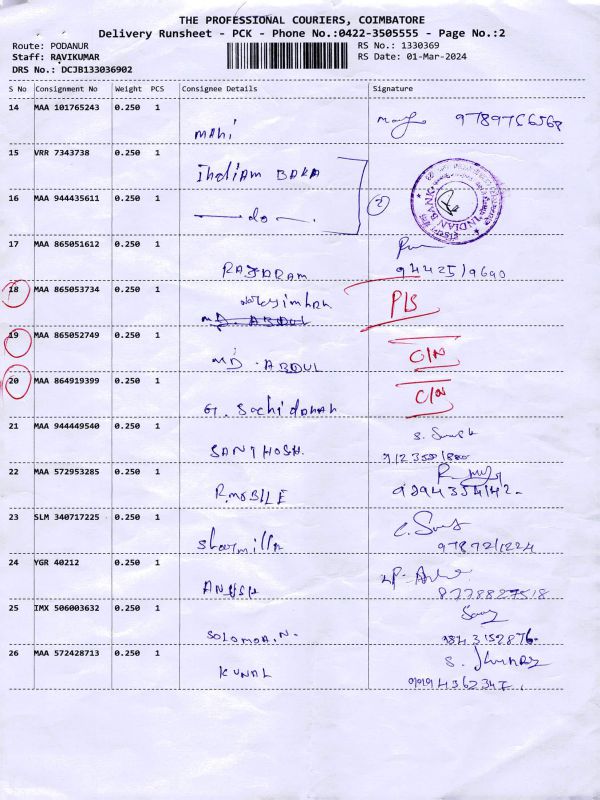 THE PROFESSIONAL COURIERS, COIMBATORE
Delivery Runsheet - PCK - Phone No.:0422-3505555 - Page No.:2
Route: PODANUR RS No.: 1330369
Staff: RAVIKUMAR RS Date: 01-Mar-2024
DRS No.: DCJB133036902
S No Consignment No Weight PCS Consignee Details Signature
14 MAA 101765243 0.250 1
Mahi 9789766568
15 VRR 7343738 0.250 1
Indiam BAKA
16 MAA 944435611 0.250 1
do 2
INDIAN BANK
17 MAA 865051612 0.250 1
RAJARAM 9442519690
18 MAA 865053734 0.250 1
P/S
MD. ABDUL
19 MAA 865052749 0.250 1
MD. ABDUL C/N
20 MAA 864919399 0.250 1
G. Sachidanah C/N
21 MAA 944449540 0.250 1
SANTHOSH.
22 MAA 572953285 0.250 1
R.MOBILE 9894354142
23 SLM 340717225 0.250 1
Sharmilla 9787211224
24 YGR 40212 0.250 1
ANUSH 8778827518
25 IMX 506003632 0.250 1
SOLOMOA.N. 9843152876
26 MAA 572428713 0.250 1
KUNAL